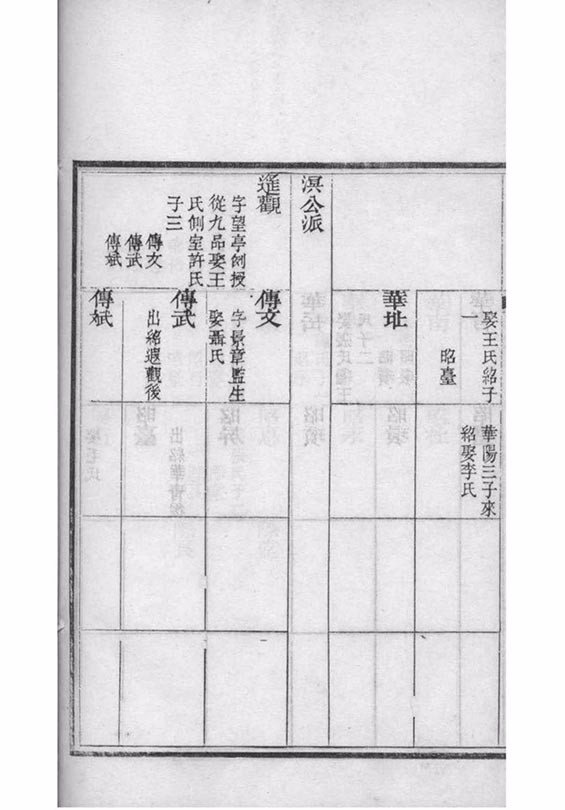 娶王氏紹子
一
昭臺
華陽三子來
紹娶李氏
華址
溟公派
遙觀
字望亭例授
從九品娶王
氏側室許氏
子三
傳文
傳武
傳斌
傳文
字景章監生
娶聶氏
傳武
出紹遐觀後
傳斌